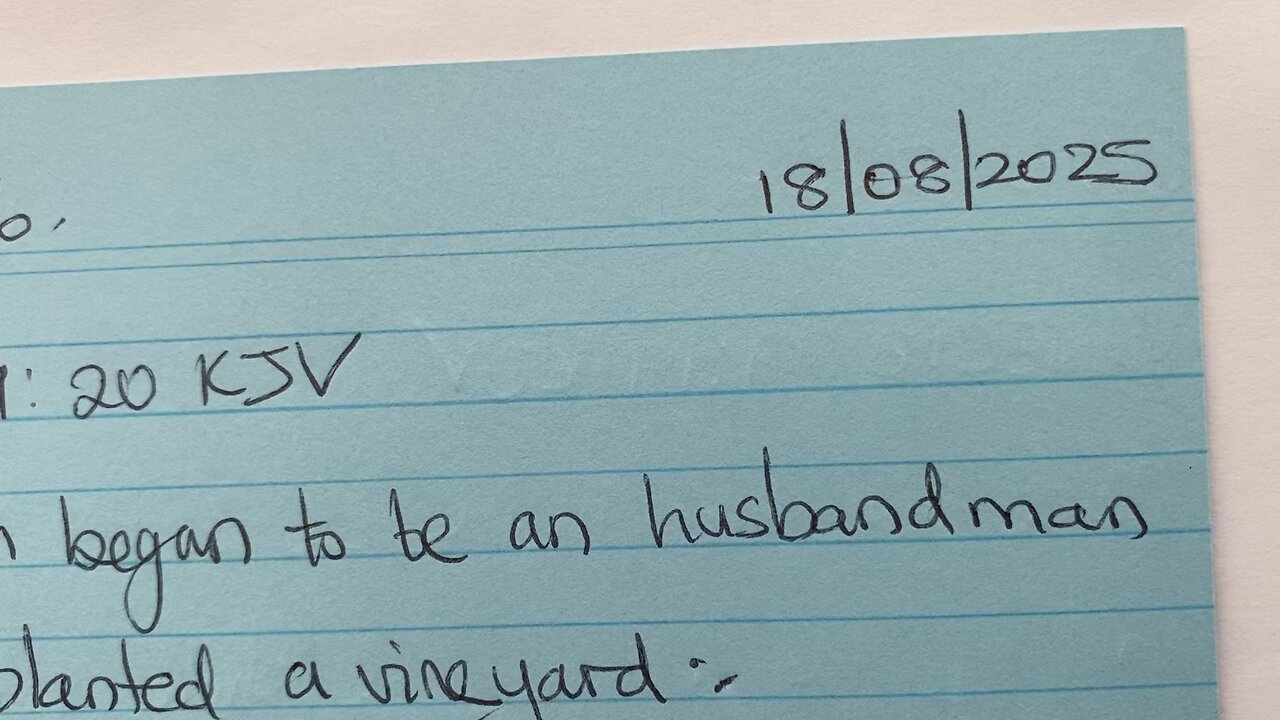 18/08/2025
: 20 KJV
began to be an husbandman
planted a vineyard:-